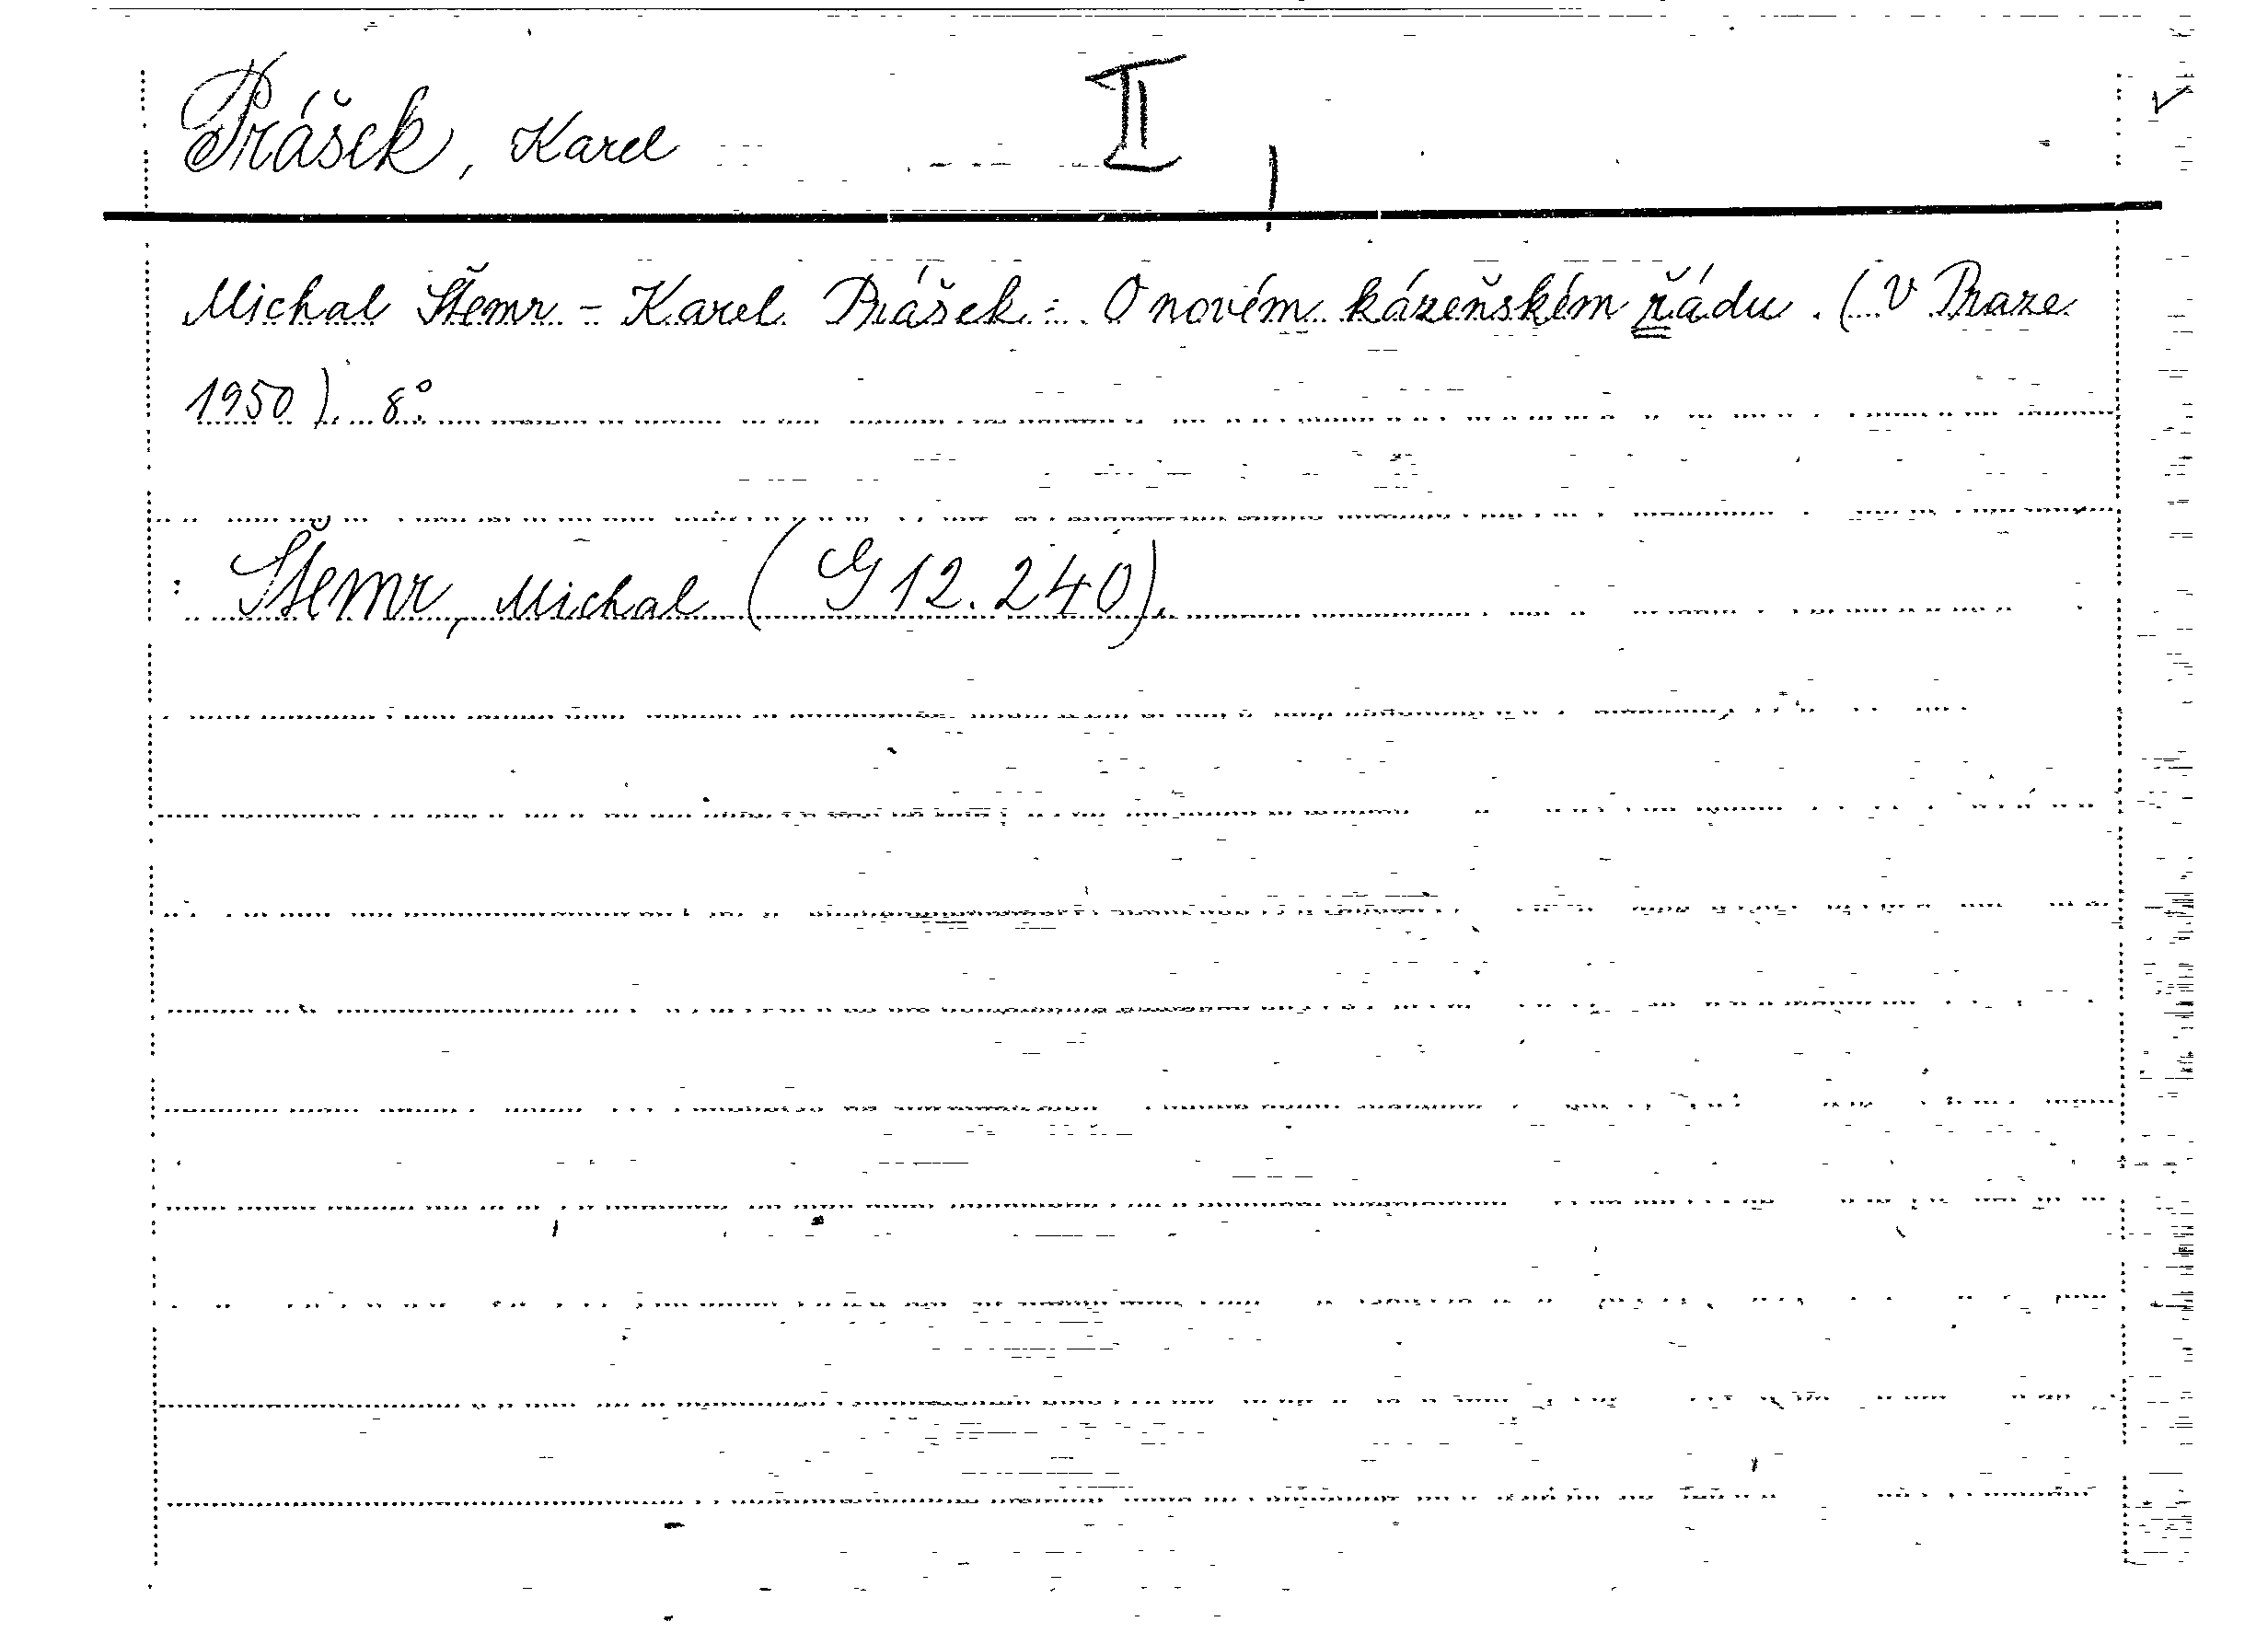 Prášek, Karel II
Michal Štěmr - Karel Prášek: O novém kázeňském řádu. (V Praze
1950). 8°.
Štěmr, Michal (G 12.240).